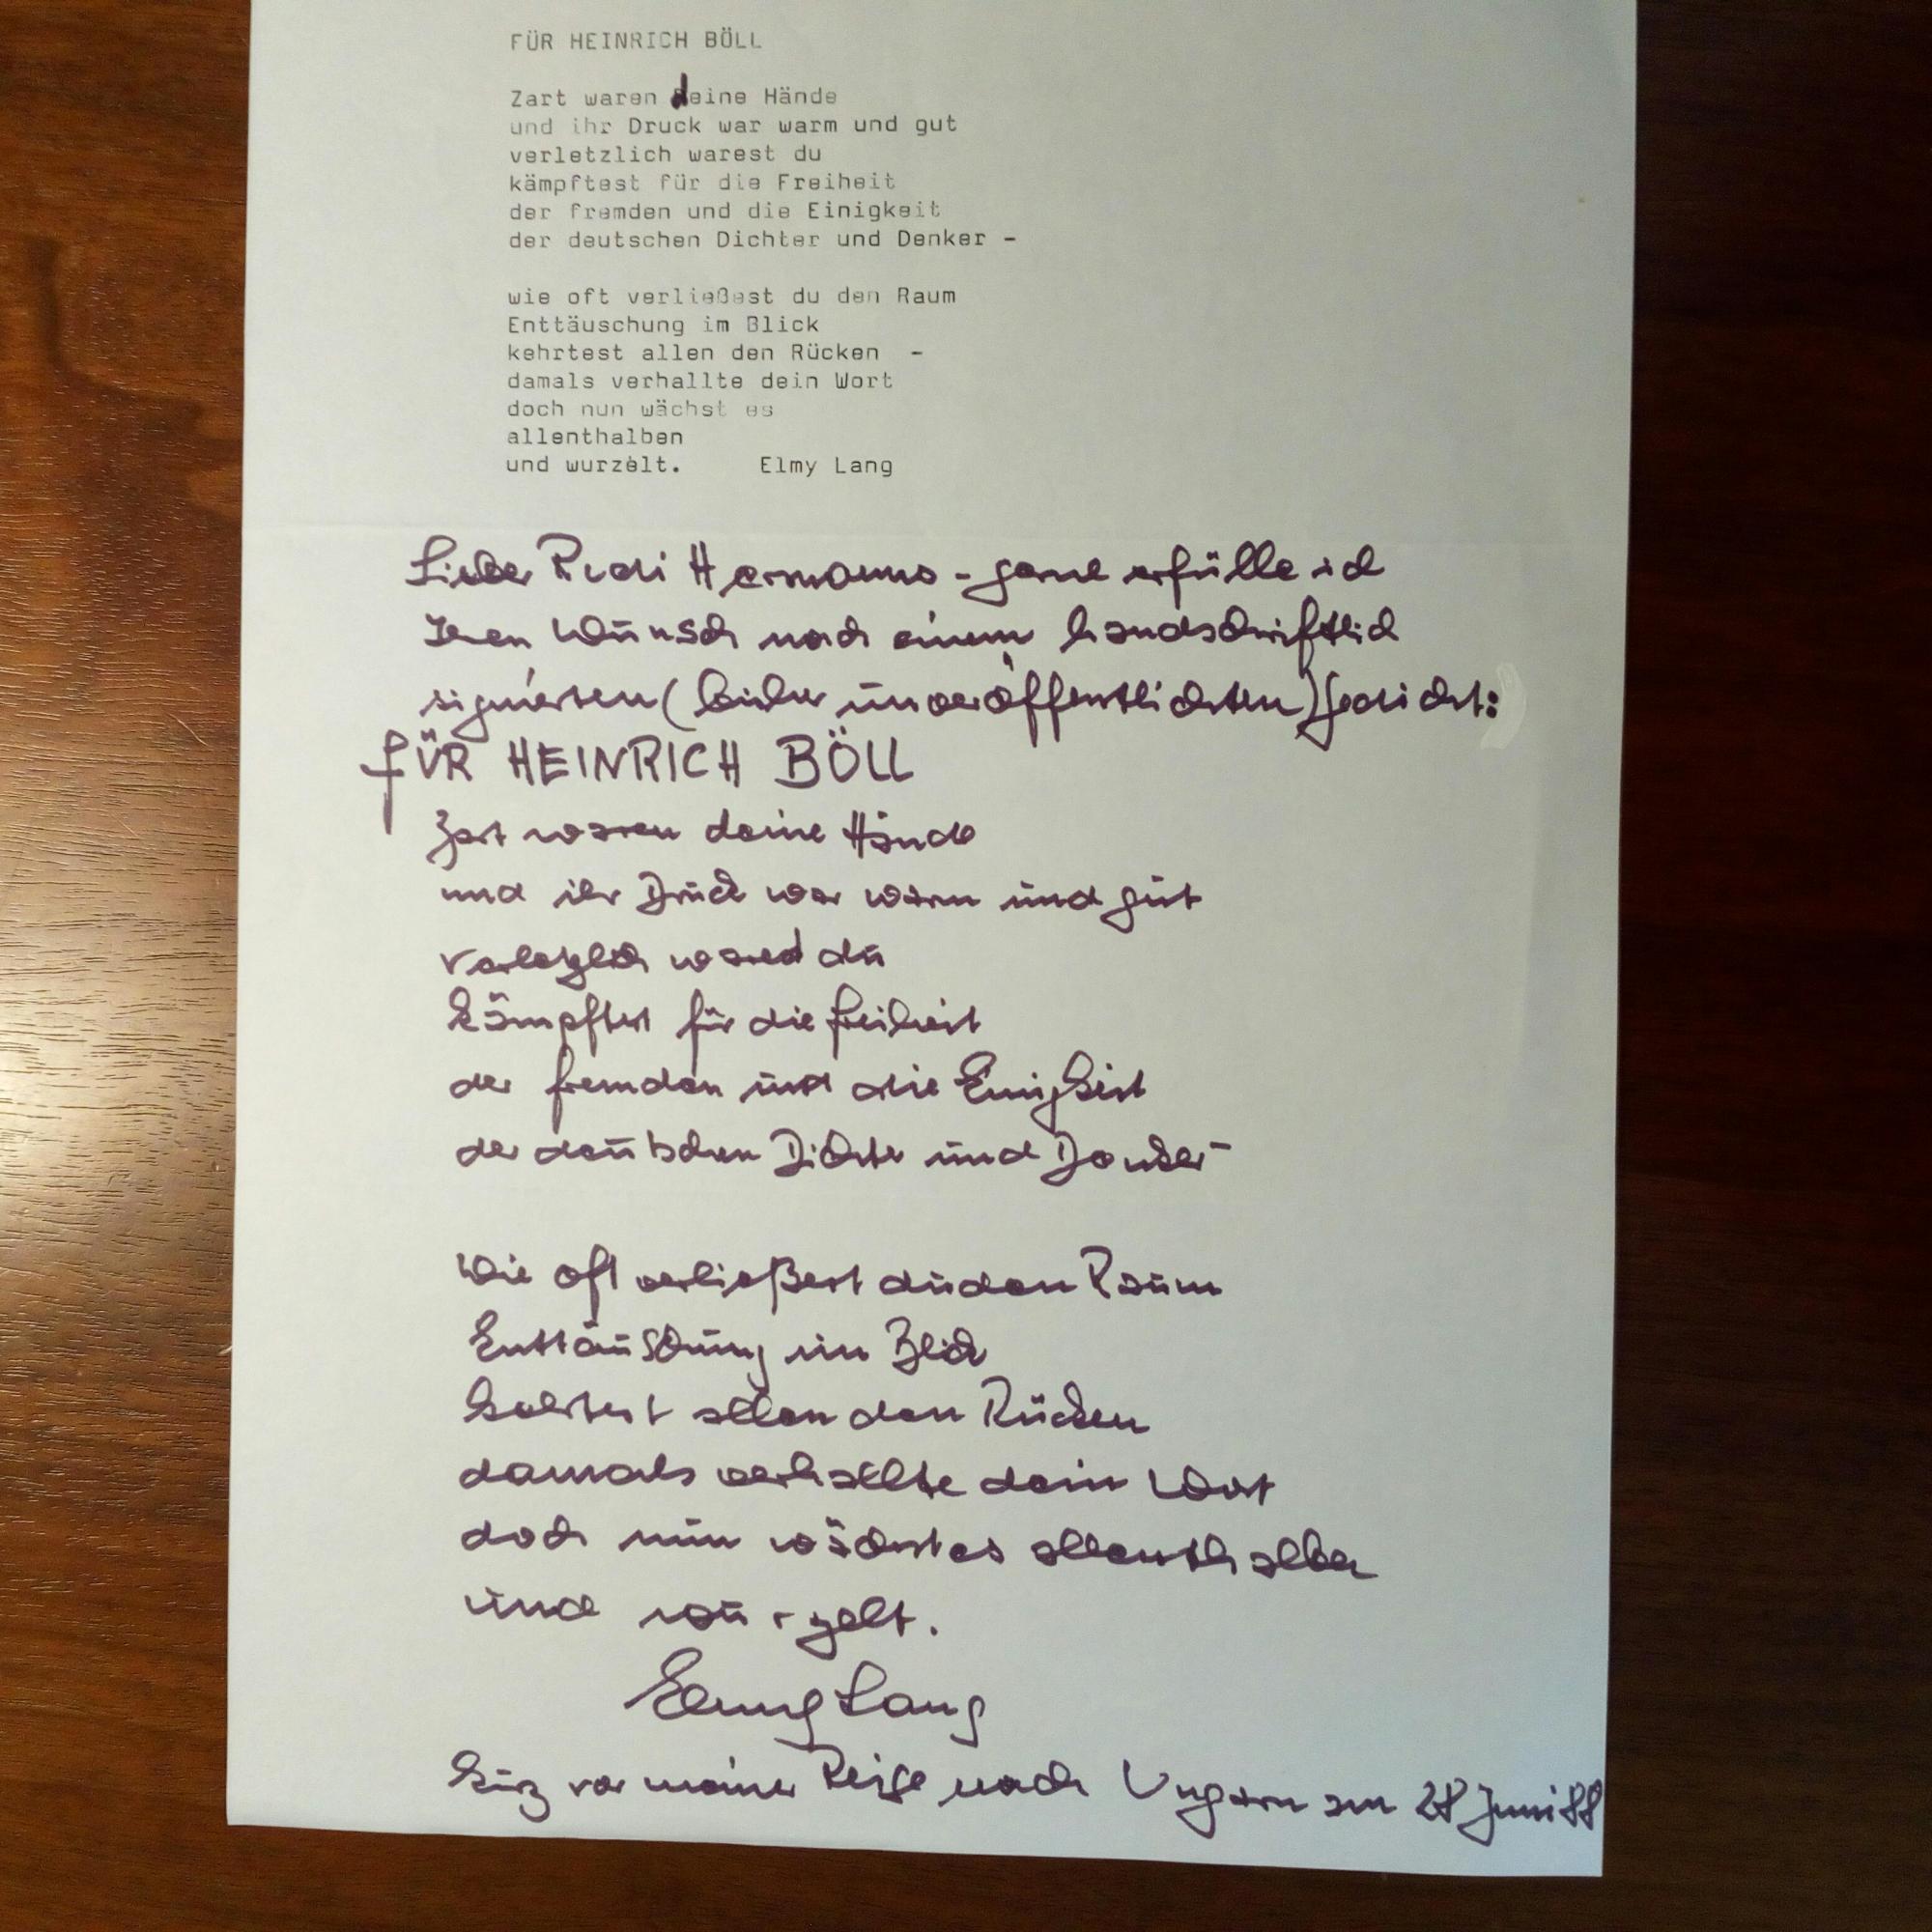 FÜR HEINRICH BÖLL
Zart waren deine Hände
und ihr Druck war warm und gut
verletzlich warest du
kämpftest für die Freiheit
der fremden und die Einigkeit
der deutschen Dichter und Denker -
wie oft verließest du den Raum
Enttäuschung im Blick
kehrtest allen den Rücken -
damals verhallte dein Wort
doch nun wächst es
allenthalben
und wurzelt. Elmy Lang
Lieber Rudi Hermanns - gerne erfülle ich
Ihren Wunsch nach einem handschriftlich
signierten (bisher unveröffentlichten) Gedicht:
FÜR HEINRICH BÖLL
Zart waren deine Hände
und ihr Druck war warm und gut
verletzlich warest du
kämpftest für die Freiheit
der fremden und die Einigkeit
der deutschen Dichter und Denker -
Wie oft verließest du den Raum
Enttäuschung im Blick
kehrtest allen den Rücken
damals verhallte dein Wort
doch nun wächst es allenthalben
und wurzelt.
Elmy Lang
kurz vor meiner Reise nach Ungarn am 28 Juni 88